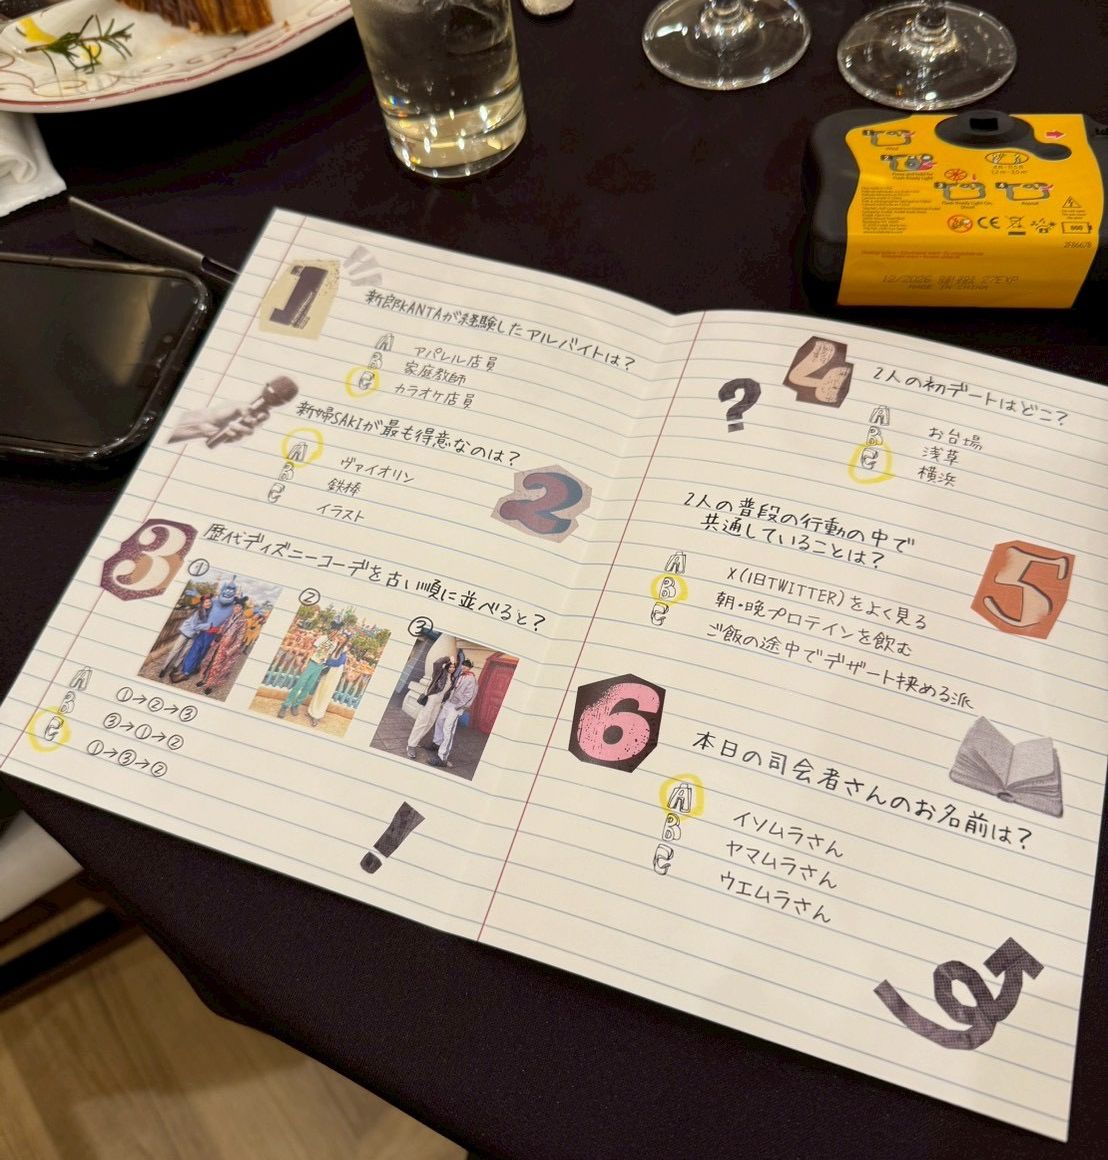 1
新郎KANTAが経験したアルバイトは?
A アパレル店員
B 家庭教師
C カラオケ店員
新婦SAKIが最も得意なのは?
2
A ヴァイオリン
B 鉄棒
C イラスト
3
歴代ディズニーコーデを古い順に並べると?
①
②
③
A ①→②→③
B ③→①→②
C ①→③→②
!
?
4
2人の初デートはどこ?
A お台場
B 浅草
C 横浜
2人の普段の行動の中で
共通していることは?
5
A X(旧TWITTER)をよく見る
B 朝・晩プロテインを飲む
C ご飯の途中でデザート挟める派
6
本日の司会者さんのお名前は?
A イソムラさん
B ヤマムラさん
C ウエムラさん
CE
12/2026
MADE IN CHINA